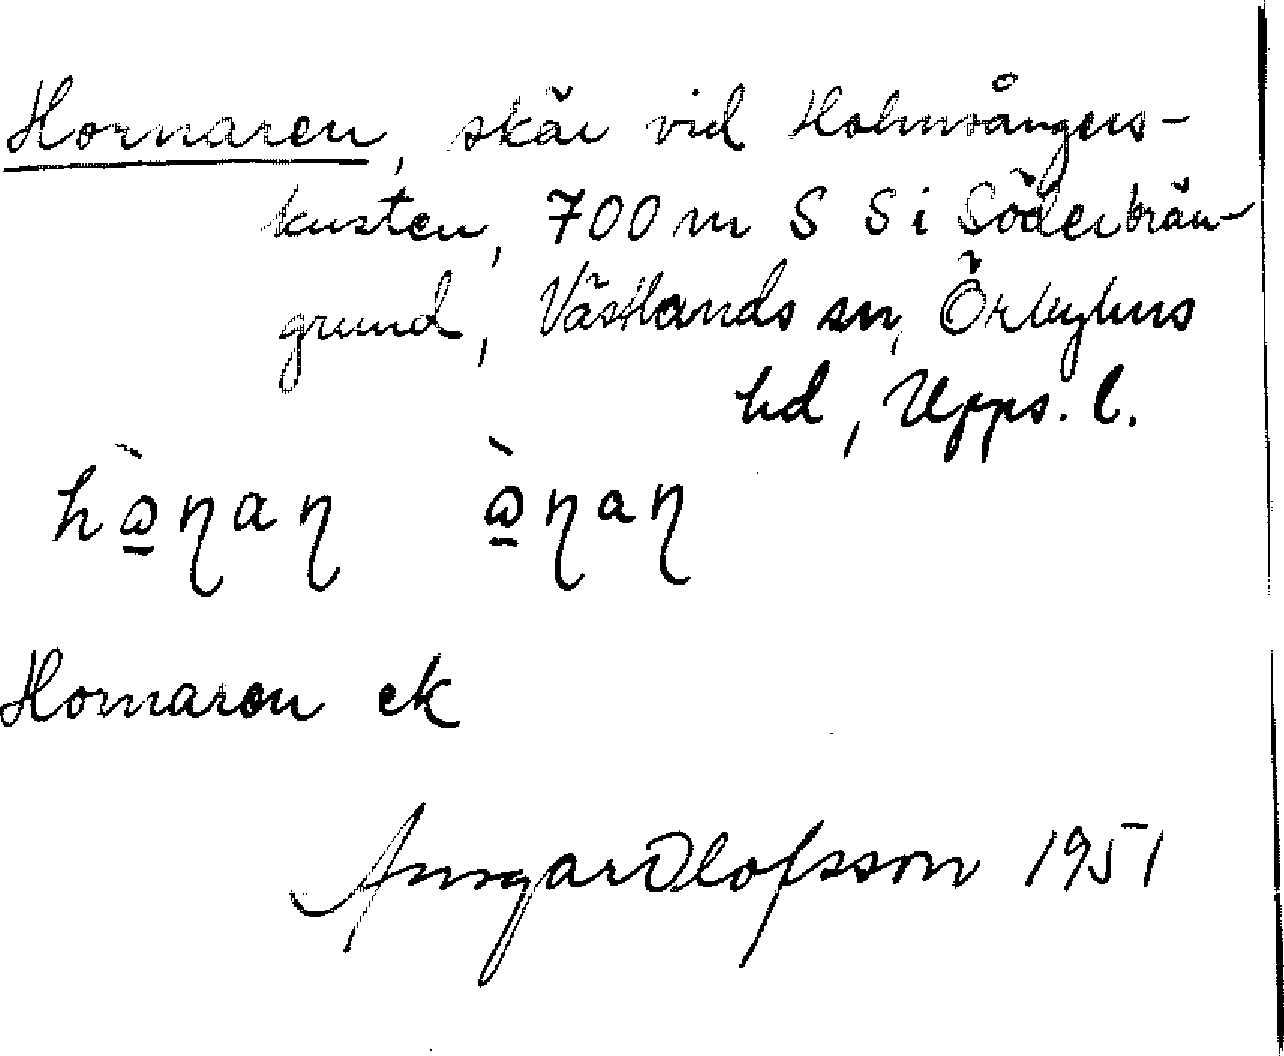 Hornaren, skär vid Holmsångers-
kusten, 700 m S S i Söderbrän-
grund, Västlands sn, Örbyhus
hd, Upps. l.
Hornaren ek
Ansgar Olofsson 1951